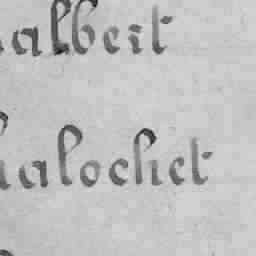 albert
alochet